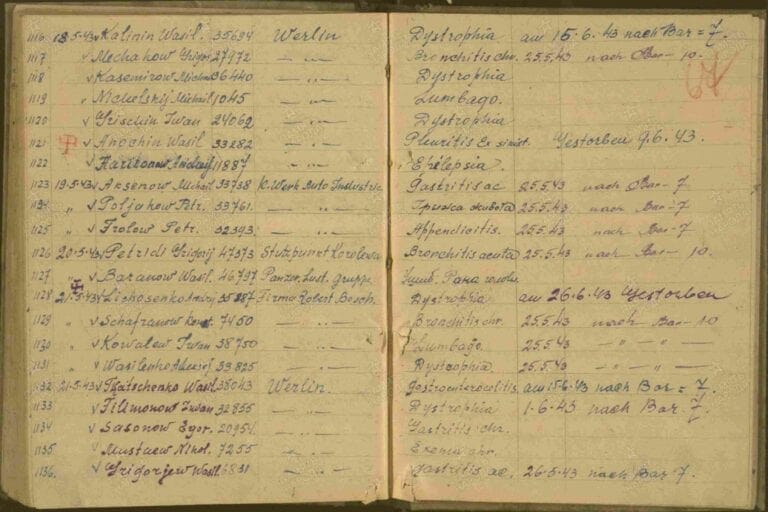 1116 18.5.43 v Kalinin Wasil. 35694 Werlin Dystrophia am 15.6.43 nach Bar = 7.
1117 " v Mechakow Grigori 27972 — " — Bronchitis chr. 25.5.43 nach Bar - 10.
1118 " v Kasemirow Michail 36440 — " — Dystrophia
1119 " v Nickelskij Michail 1045 — " — Lumbago.
1120 " v Grischin Iwan 24062 — " — Dystrophia
1121 v Anochin Wasil 33282 — " — Pleuritis Ex sinist. Gestorben 9.6.43.
1122 " v Andrej 11887 — " — Epilepsia.
1123 19.5.43 v Aksenow Michail 33738 K. Werk Auto Industrie Gastritis ac 25.5.43 nach Bar - 7
1124 " v Poljakow Petr. 33761 — " — Грижа живота 25.5.43 nach Bar - 7
1125 " v Frolow Petr. 32393 — " — Appendicitis. 25.5.43 nach Bar - 7
1126 20.5.43 v Petridi Grigorij 47373 Stutzpunkt Korolewa Bronchitis acuta 25.5.43 nach Bar - 10.
1127 " v Baranow Wasil. 46797 Panzer. Lust. gruppe Ушиб. Рана головы
1128 21.5.43 v Lichosenko 35287 Firma Robert Bosch. Dystrophia am 26.6.43 Gestorben
1129 " v Schafranow Konst. 7450 — " — Bronchitis chr. 25.5.43 nach Bar - 10
1130 " v Kowalew Iwan 38750 — " — Lumbago. 25.5.43 — " — " —
1131 " v Wasilenko Aleksej 33825 — " — Dystrophia 25.5.43 — " — " —
1132 21.5.43 v Tkaitschenko Wasil 38043 Werlin. Gastroenterocolitis. am 15.6.43 nach Bar = 7.
1133 " v Filimonow Iwan 32855 — " — Dystrophia 1.6.43 nach Bar 7.
1134 " v Sasonow Egor. 20954 — " — Gastritis chr.
1135 " v Mustaew Nikol. 7255 — " — Exema chr.
1136. " v Grigorjew Wasil. 6831 — " — Gastritis ac. 26.5.43 nach Bar - 7.